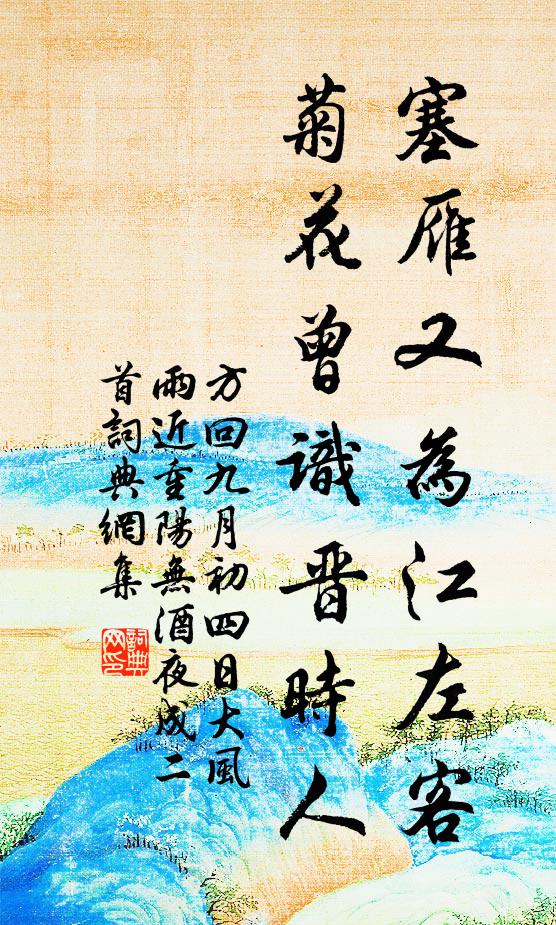 塞雁又為江左客
菊花曾識晋時人
方回九月初四日大風
雨近重陽無酒夜成二
首詞典網集
詞典
网印